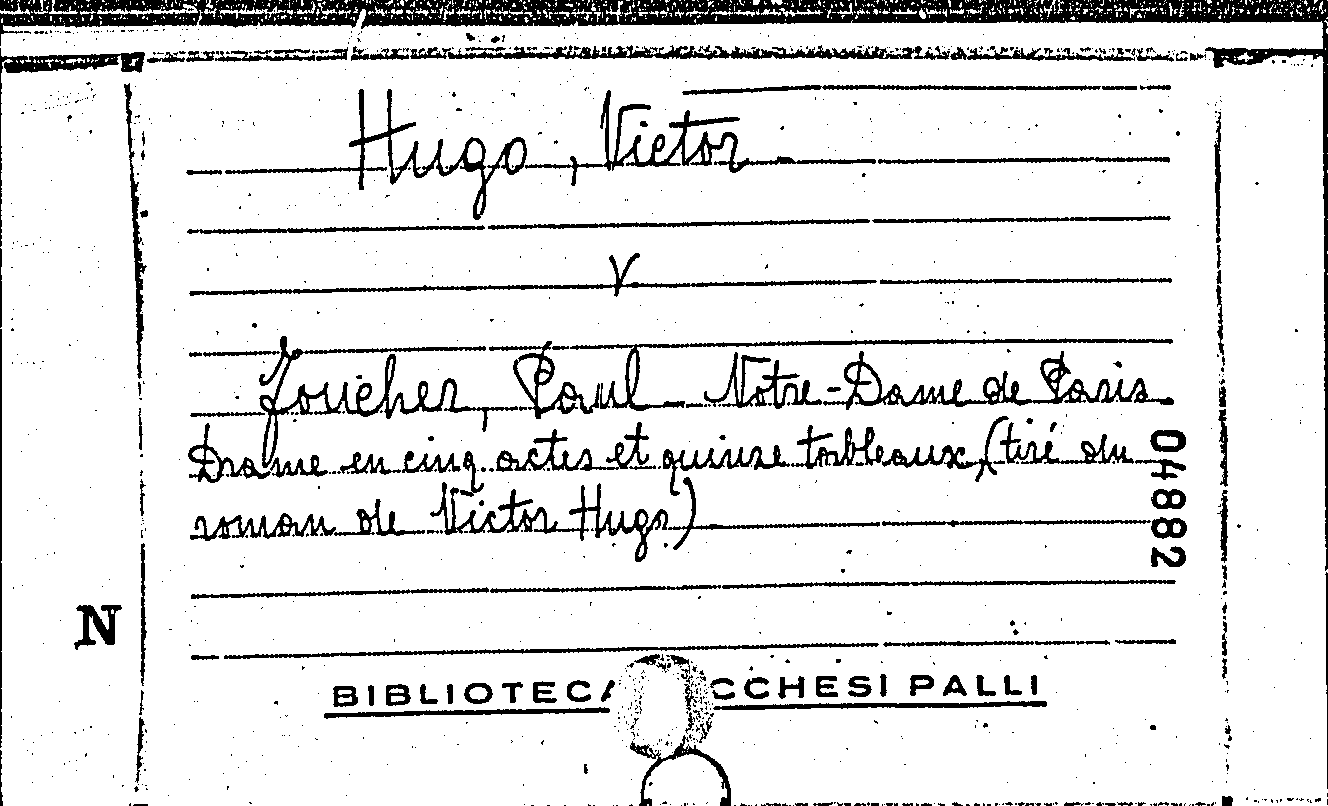 Hugo, Victor
V.
Foucher, Paul - Notre-Dame de Paris.
Drame en cinq actes et quinze tableaux, (tiré du
roman de Victor Hugo)
04882
N
BIBLIOTECA CCHESI PALLI